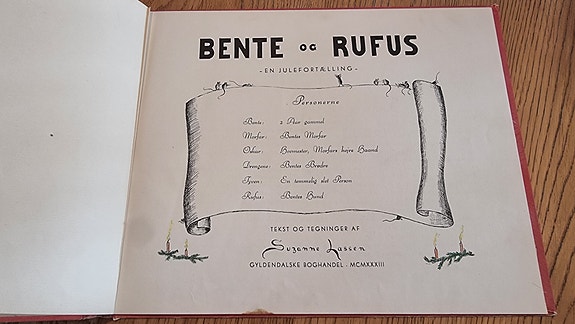 BENTE OG RUFUS
- EN JULEFORTÆLLING -
Personerne
Bente: 2 Aar gammel
Morfar: Bentes Morfar
Oskar: Hovmester, Morfars højre Haand
Drengene: Bentes Brødre
Tyven: En temmelig slet Person
Rufus: Bentes Hund
TEKST OG TEGNINGER AF
Suzanne Lassen
GYLDENDALSKE BOGHANDEL - MCMXXXIII